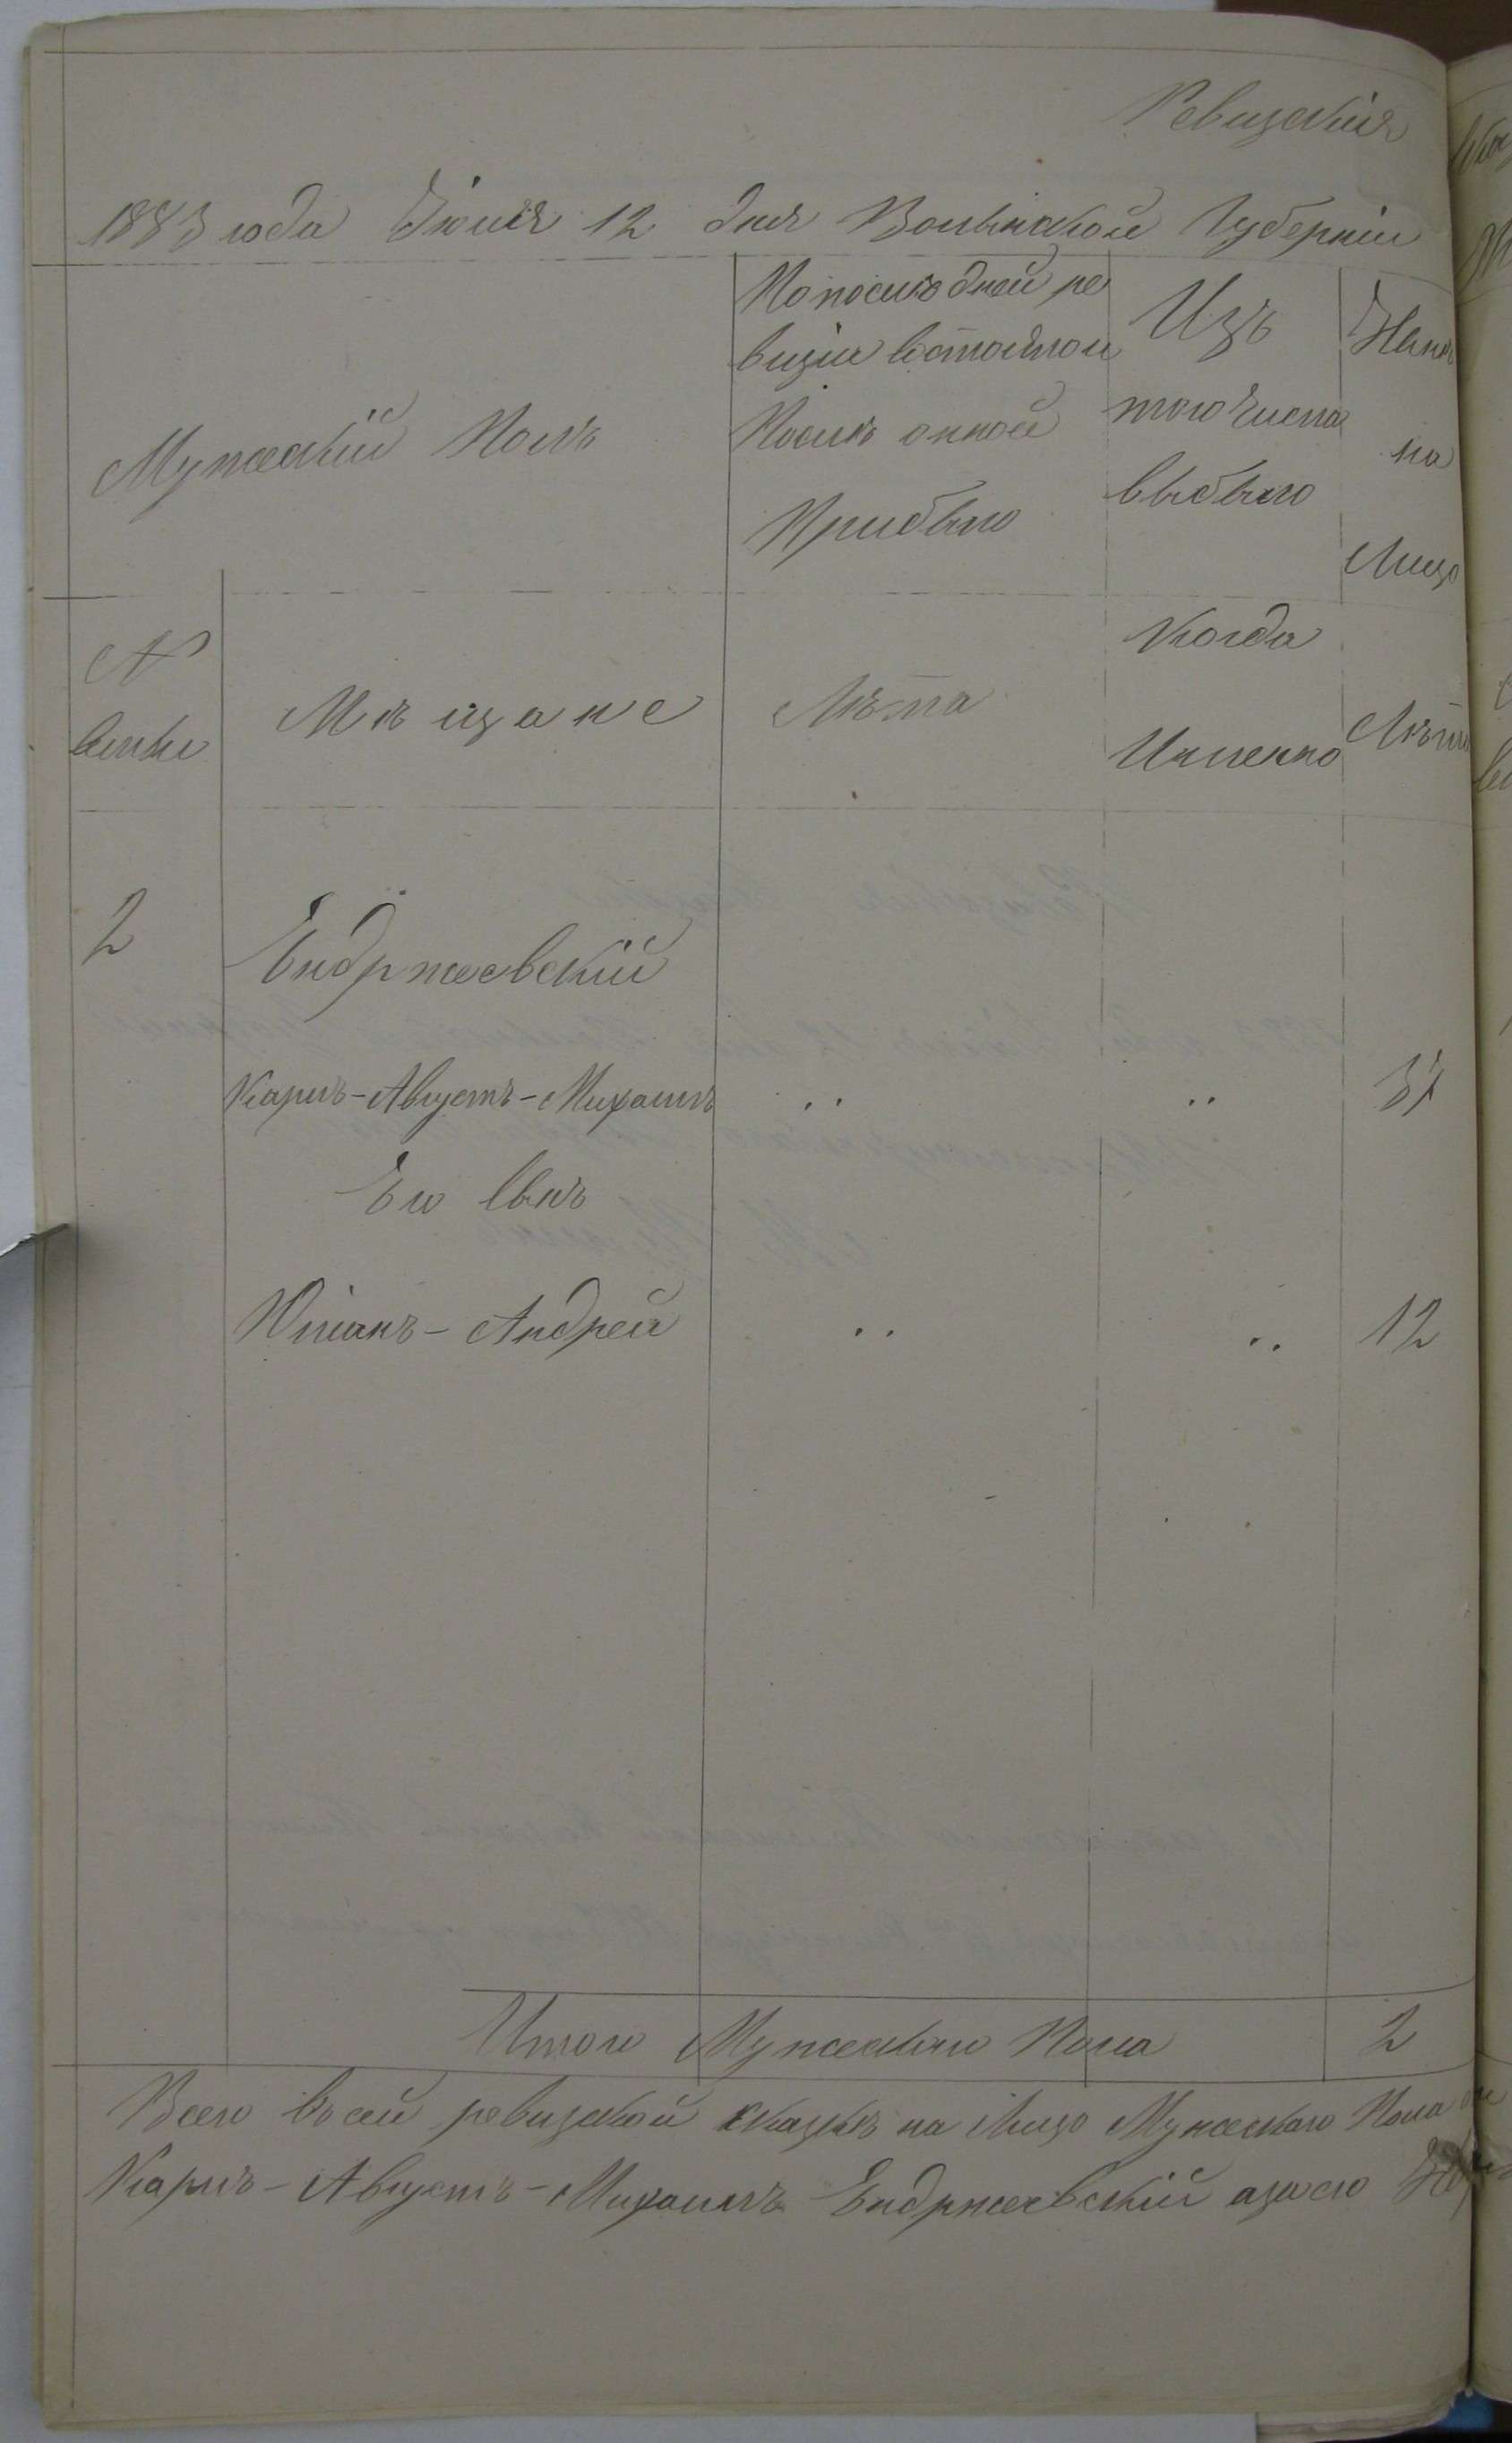 Ревизскія
1883 года Іюня 12 дня Волынской Губерніи
Мужескій Полъ
По послѣдней ре
визіи состояло и
Послѣ оной
Прибыло
Изъ
того числа
выбыло
Нын
на
Лицо
№
семьи
Мѣщане
Лѣта
Когда
Именно
Лѣта
2
Ендржеевскій
Карлъ-Августъ-Михаилъ " "
Его Сынъ
Юліанъ-Андрей " " 12
Итого Мужескаго Пола 2
Всего въ сей ревизской сказкѣ на Лицо Мужескаго Пола
Карлъ-Августъ-Михаилъ Ендржеевскій а за его